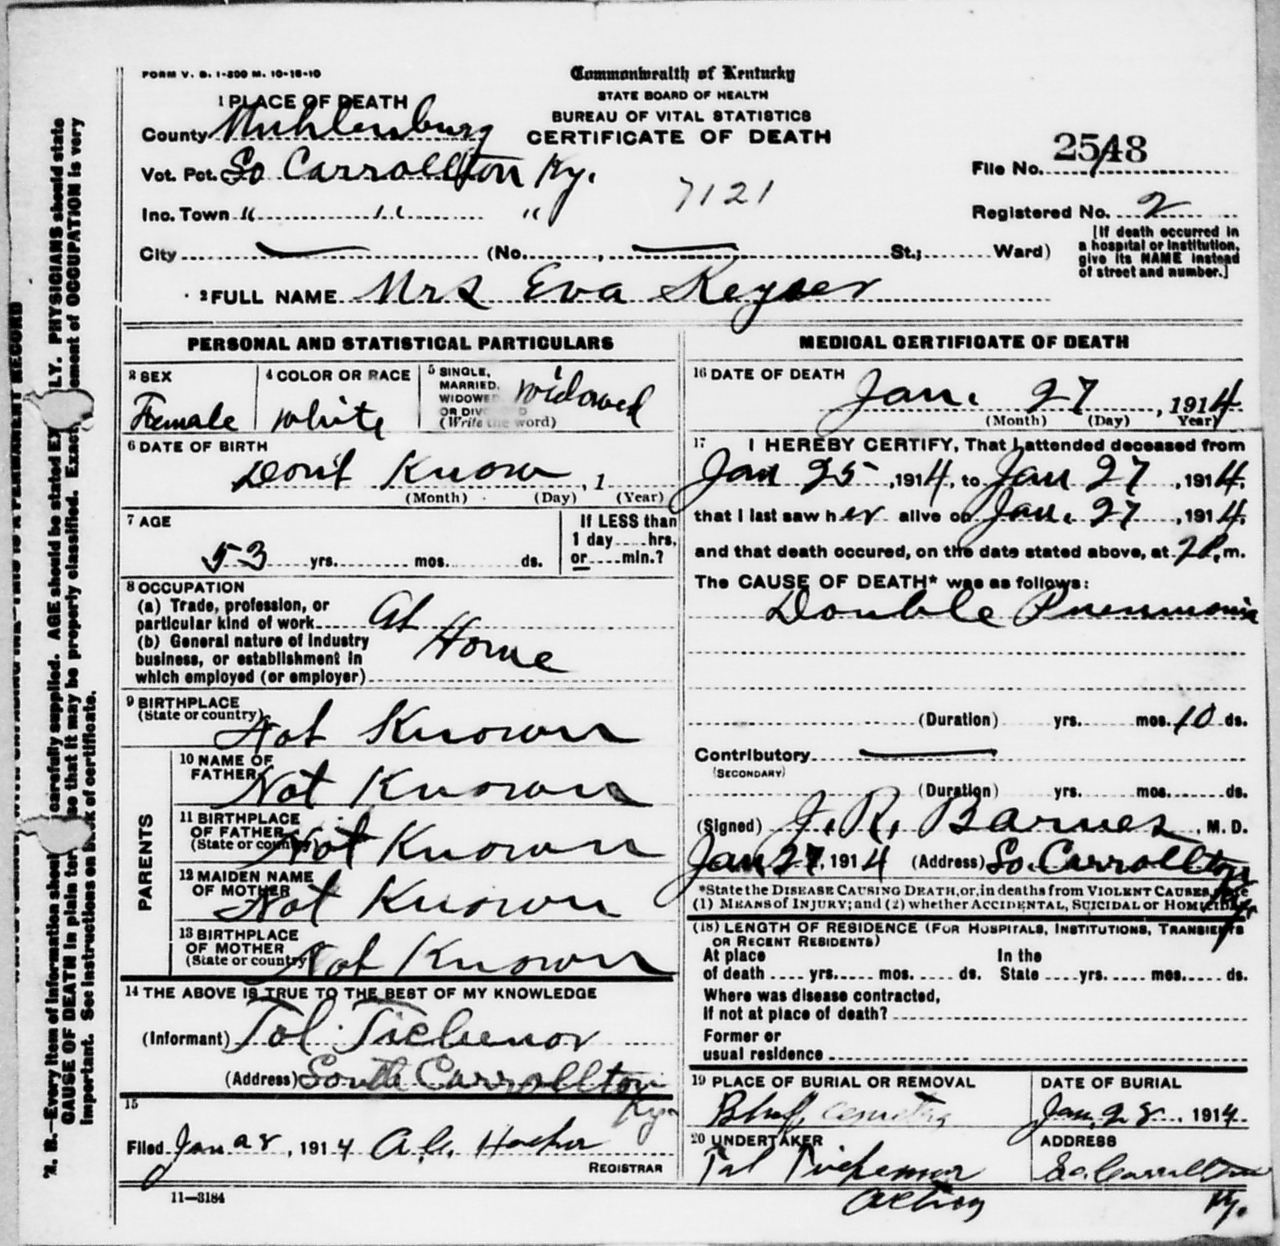 FORM V. S. 1-300 M. 10-18-10
Commonwealth of Kentucky
STATE BOARD OF HEALTH
BUREAU OF VITAL STATISTICS
CERTIFICATE OF DEATH
1 PLACE OF DEATH
County Muhlenburg
Vot. Pct. So Carrollton Ky.
Inc. Town " " "
7121
City (No. , St.; Ward)
File No. 2548
Registered No. 2
[If death occurred in
a hospital or institution,
give its NAME instead
of street and number.]
2 FULL NAME Mrs Eva Keyser
PERSONAL AND STATISTICAL PARTICULARS
3 SEX
Female
4 COLOR OR RACE
White
5 SINGLE,
MARRIED,
WIDOWED
OR DIV D
(Write the word)
Widowed
6 DATE OF BIRTH
Don't Know , 1
(Month) (Day) (Year)
7 AGE
53 yrs. mos. ds.
If LESS than
1 day hrs.
or min.?
8 OCCUPATION
(a) Trade, profession, or
particular kind of work At
(b) General nature of industry
business, or establishment in
which employed (or employer)
Home
9 BIRTHPLACE
(State or country)
Not Known
PARENTS
10 NAME OF
FATHER
Not Known
11 BIRTHPLACE
OF FATHER
(State or country)
Not Known
12 MAIDEN NAME
OF MOTHER
Not Known
13 BIRTHPLACE
OF MOTHER
(State or country)
Not Known
14 THE ABOVE IS TRUE TO THE BEST OF MY KNOWLEDGE
(Informant) Tol Tichenor
(Address) South Carrollton
Ky.
15
Filed Jan 28, 1914 A.C.
REGISTRAR
11-3184
MEDICAL CERTIFICATE OF DEATH
16 DATE OF DEATH
Jan. 27, 1914
(Month) (Day) Year)
17 I HEREBY CERTIFY, That I attended deceased from
Jan 25, 1914, to Jan 27, 1914,
that I last saw her alive on Jan. 27, 1914,
and that death occured, on the date stated above, at 2 P. m.
The CAUSE OF DEATH* was as follows:
Double Pneumonia
(Duration) yrs. mos. 10 ds.
Contributory
(SECONDARY)
(Duration) yrs. mos. ds.
(Signed) J. R. Barnes, M. D.
Jan 27, 1914 (Address) So. Carrollton
Ky.
*State the DISEASE CAUSING DEATH, or, in deaths from VIOLENT CAUSES, state
(1) MEANS of INJURY; and (2) whether ACCIDENTAL, SUICIDAL or HOMICIDAL.
(18) LENGTH OF RESIDENCE (FOR HOSPITALS, INSTITUTIONS, TRANSIENTS
OR RECENT RESIDENTS)
At place In the
of death yrs. mos. ds. State yrs. mos. ds.
Where was disease contracted,
If not at place of death?
Former or
usual residence
19 PLACE OF BURIAL OR REMOVAL
Bluf, Cemetry
DATE OF BURIAL
Jan, 28, 1914
20 UNDERTAKER
Tol Tichenor
Acting
ADDRESS
So. Carrollton
Ky.
N. B.—Every item of information shou carefully supplied. AGE should be stated EX LY. PHYSICIANS should state
CAUSE OF DEATH in plain ter so that it may be properly classified. Exact ement of OCCUPATION is very
important. See instructions on back of certificate.